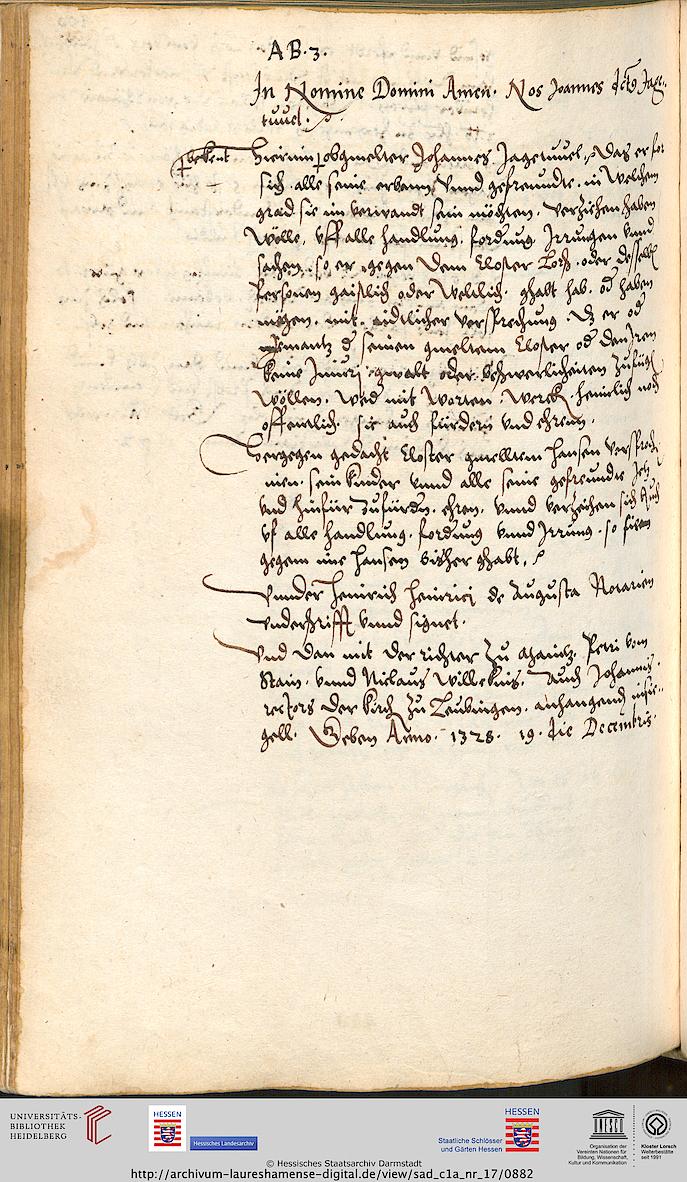 AB.3.
In Nomine Domini Amen. Nos Joannes dict9 Jage-
tuuel.
bekent Hierinn obgmelter Johannes Jagetuuel, Das er for
sich. alle seine erbenn, vnnd gefreundte. in Welchem
grad sie im verwandt sein möchten. verzichen haben
Wölle, vff alle handlung, fordrung Irrungen vnnd
sachen, so er gegen dem Closter Lorß. oder desselb
Personen gaistlich oder Weltlich. ghabt hab. od haben
mögen. mit. aidtlicher versprechung. Dz er od
Jemantz d seinen gmeltem Closter od den Iren
keine Iniurj gwalt oder beschwerlicheiten Zufüg
wöllen. Wed mit Worten. Werck, heimlich noch
offentlich. sie auch fürdern vnd ehrenn.
Hergegen gedacht Closter gmelltem Hansen versproch
nen. sein Kinder vnnd alle seine gefreundte Jetz
vnd hinfür Zufürdn. ehren. vnnd verzeichen sich Auch
vf alle handlung. fordrung vnnd Irrung. so sie
gegem ime Hansen bisher ghabt.
Vnnder Heinrich Heinrici de Augusta Notarien
vnderschrifft vnnd signet.
Vnd dan mit der richter zu Maintz, Petri vom
Stain. vnnd Niclaus Willekuis. Auch Johannis.
rectors der Kirch zu Leubingen. anhangend insie-
gell. Geben Anno. 1328. 19. die Decembris.
UNIVERSITÄTS-
BIBLIOTHEK
HEIDELBERG
HESSEN
Hessisches Landesarchiv
HESSEN
Staatliche Schlösser
und Gärten Hessen
Organisation der
Vereinten Nationen für
Bildung, Wissenschaft,
Kultur und Kommunikation
Kloster Lorsch
Welterbestätte
seit 1991
© Hessisches Staatsarchiv Darmstadt
http://archivum-laureshamense-digital.de/view/sad_c1a_nr_17/0882